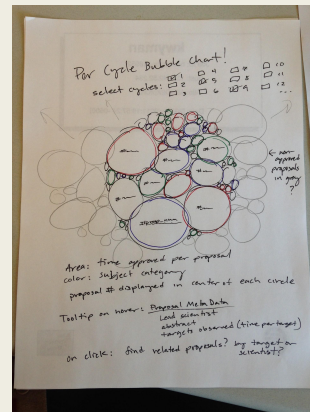 Per Cycle Bubble Chart!
select cycles: 1 4 7 10
2 5 8 11
3 6 9 12
...
← non-
approved
proposals
in grey
?
Area: time approved per proposal
color: subject category
proposal # displayed in center of each circle
Tooltip on hover: Proposal MetaData
Lead scientist
abstract
targets observed (time per target)
on click: find related proposals? by target or
scientist?